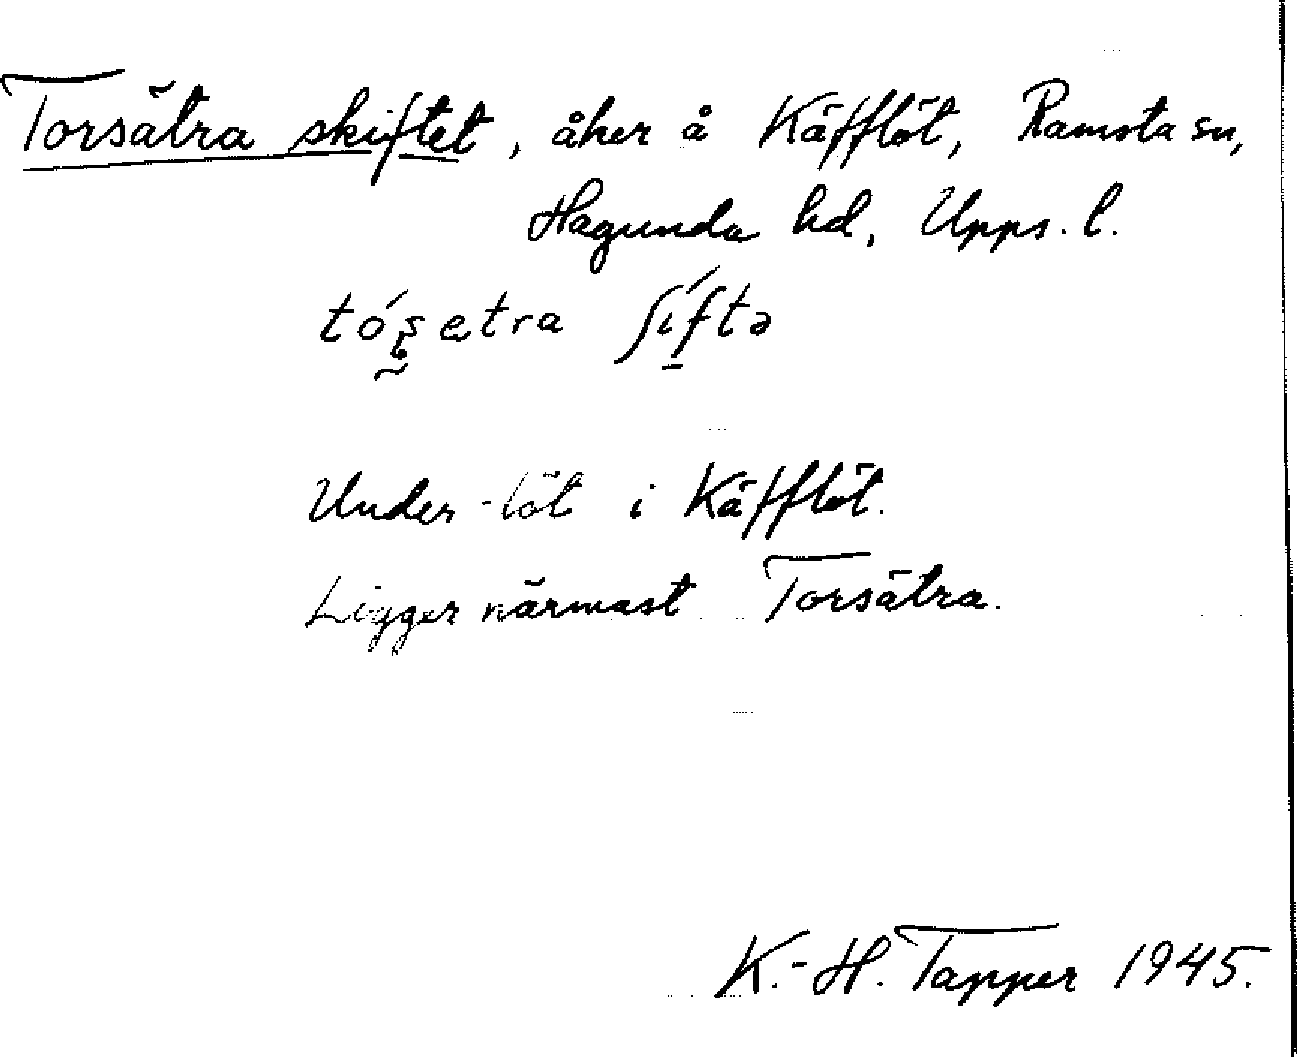 Torsätra skiftet, åker å Käfflöt, Ramsta sn,
Hagunda hd, Upps. l.
tóʂetra ʃíftə
Under -löt i Käfflöt.
Ligger närmast Torsätra.
K.-H. Tapper 1945.